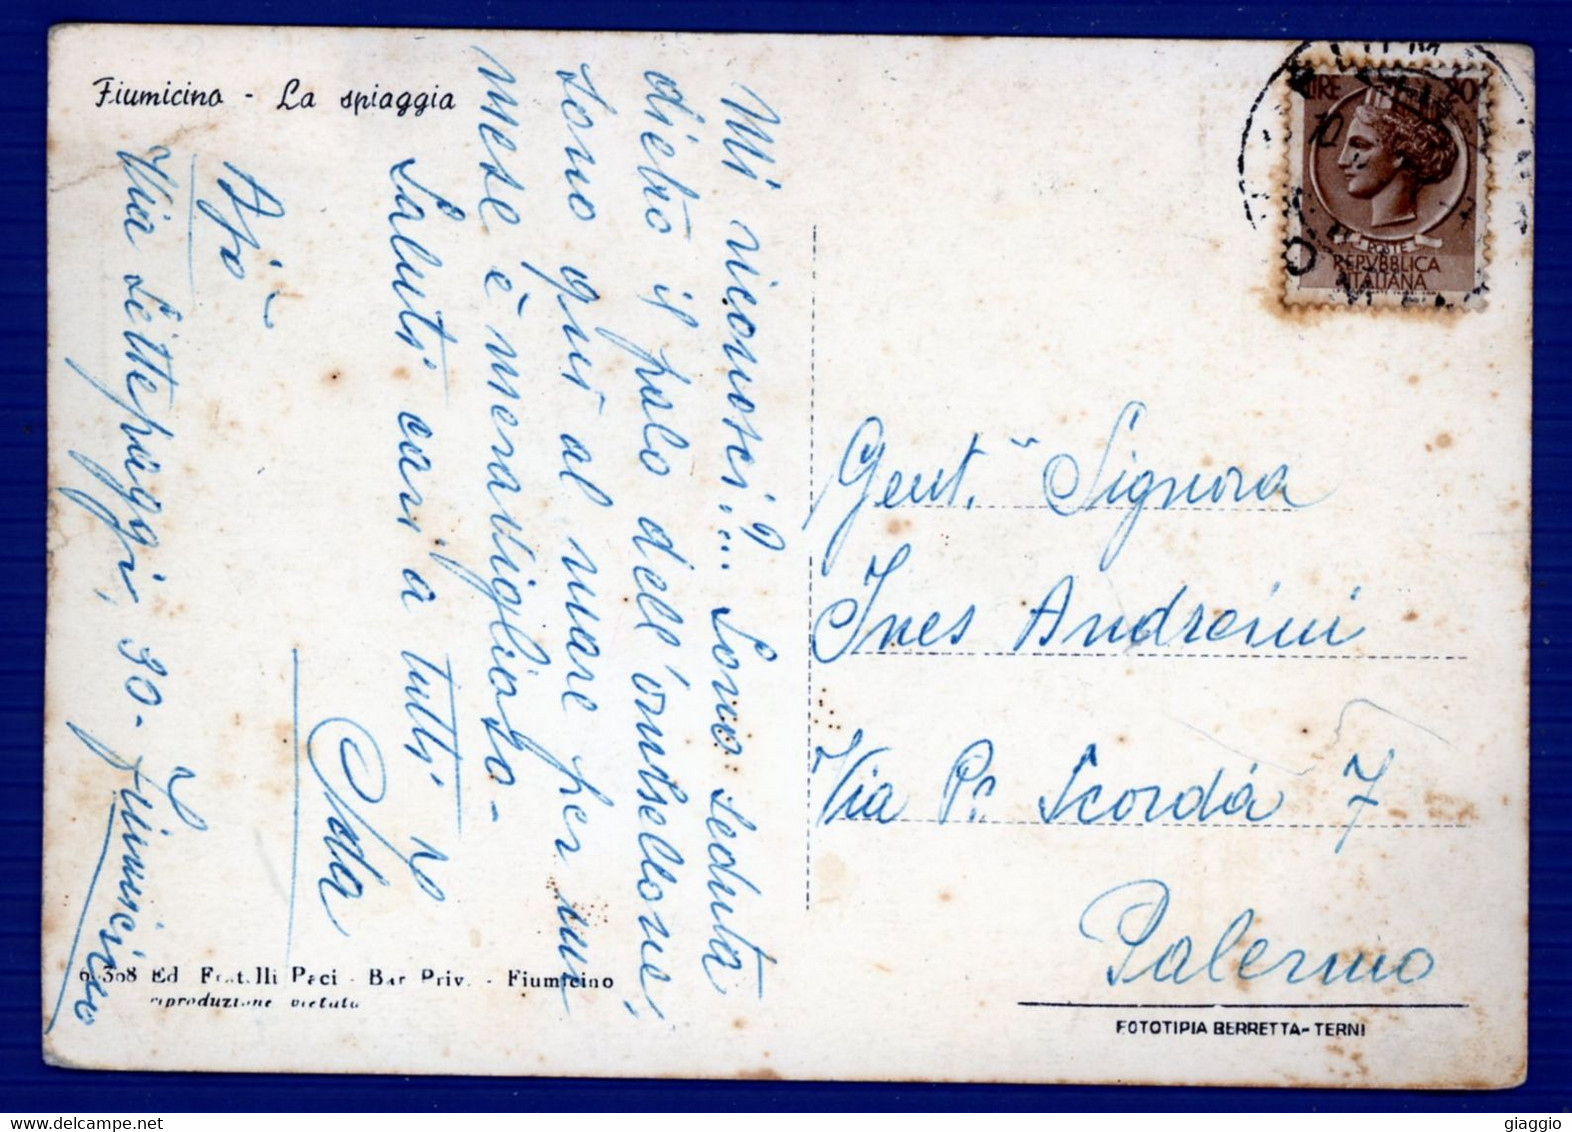 Fiumicino - La spiaggia
Mi riconosci?... Sono seduta
dietro il palo dell'ombrellone,
sono qui al mare per un
mese è meraviglioso -
Saluti cari a tutti
Ada
Via Settepaggi, 30 - Fiumicino
Gent.ᵃ Signora
Ines Andreini
Via Pr. Scordia 7
Palermo
LIRE 20
POSTE
REPVBBLICA
ITALIANA
Ed Fratelli Paci - Bar Priv. - Fiumicino
riproduzione vietata
FOTOTIPIA BERRETTA - TERNI
giaggio